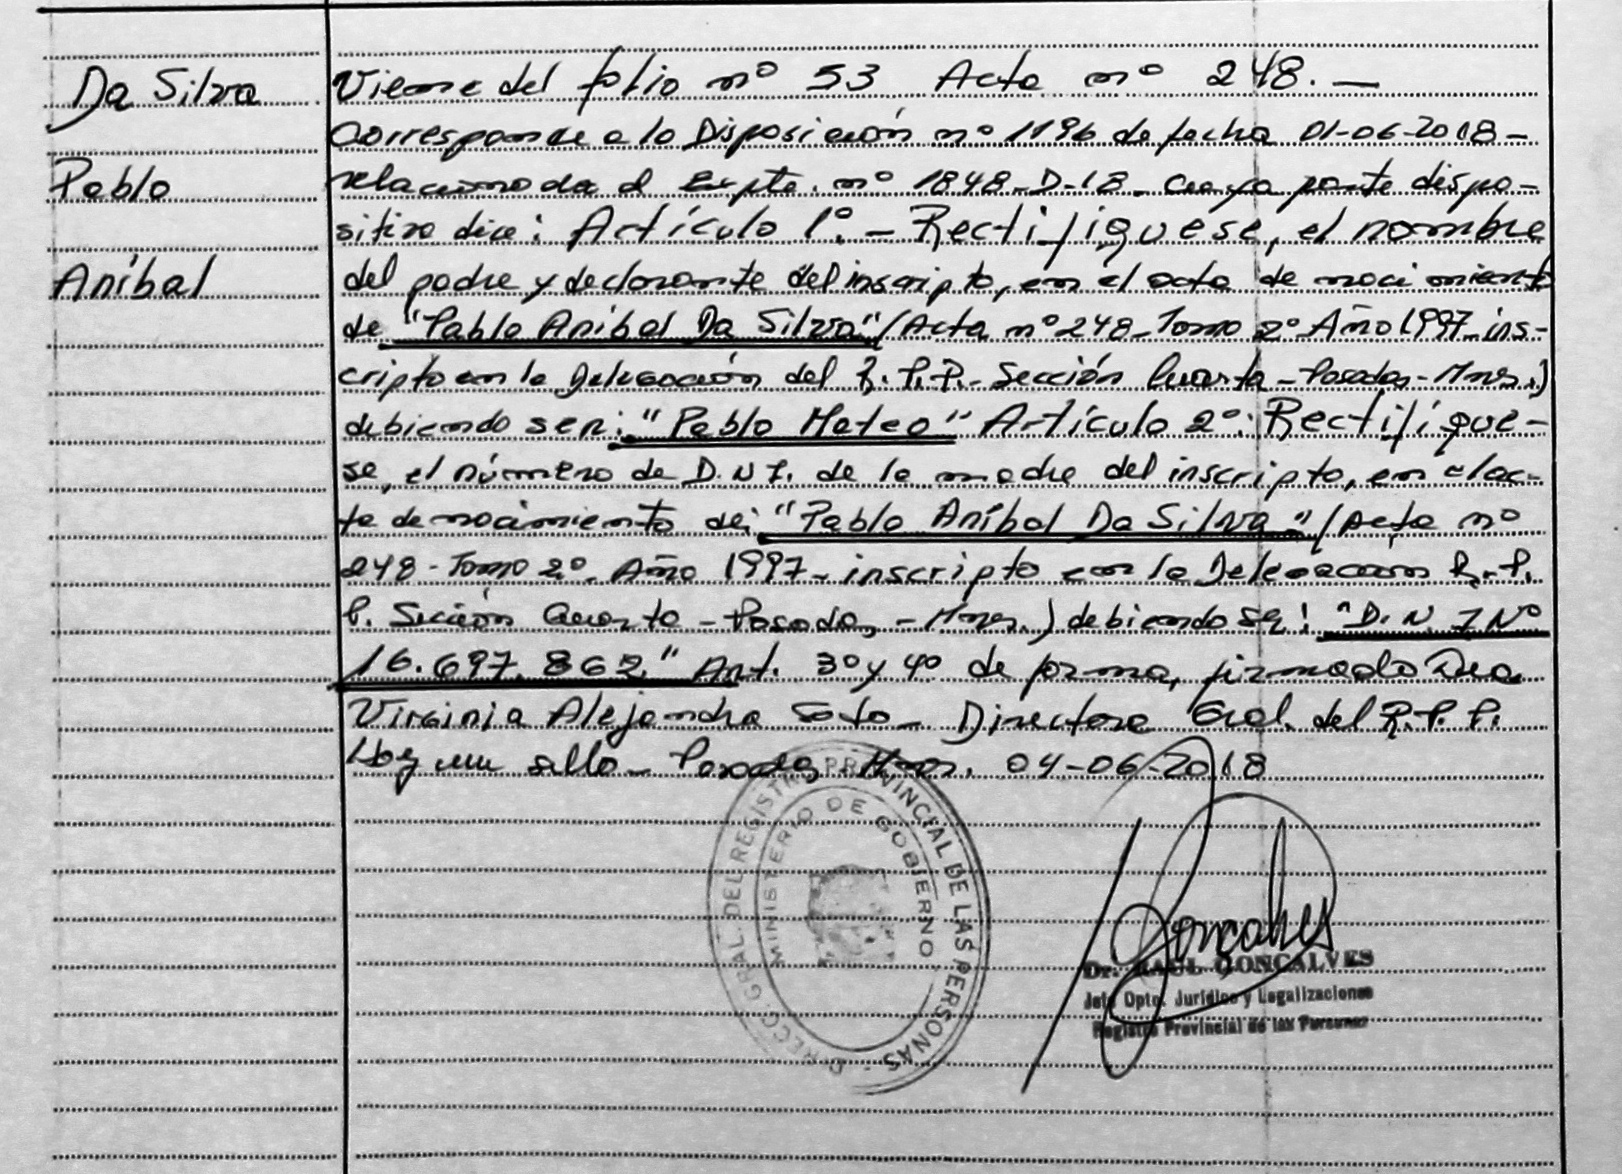 Da Silva
Pablo
Aníbal
Viene del folio nº 53 Acta nº 248. —
Corresponde a la Disposición nº 1196 de fecha 01-06-2018 -
relacionada al Expte. nº 1848-D-18- cuya parte dispo-
sitiva dice: Artículo 1º. - Rectifíquese, el nombre
del padre y declarante del inscripto, en el acta de nacimiento
de "Pablo Aníbal Da Silva" (Acta nº 248- Tomo 2º- Año 1997- ins-
cripto en la Delegación del R.P.P.- Sección Cuarta - Posadas - Mnes.)
debiendo ser: "Pablo Mateo" Artículo 2º: Rectifíque-
se, el número de D.N.I. de la madre del inscripto, en el ac-
ta de nacimiento de: "Pablo Aníbal Da Silva" (Acta nº
248 - Tomo 2º- Año 1997- inscripto en la Delegación R.P.
P. Sección Cuarta - Posadas - Mnes.) debiendo ser: "D.N.I Nº
16.697.862" Art. 3º y 4º de forma, firmado Dra
Virginia Alejandra Soto - Directora Gral. del R.P.P.
Hay un sello - Posadas, Mnes. 04-06-2018
DIRECC. GRAL. DEL REGISTRO PROVINCIAL DE LAS PERSONAS -
MINISTERIO DE GOBIERNO
Goncalves
Dr. RAUL GONCALVES
Jefe Dpto. Jurídico y Legalizaciones
Registro Provincial de las Personas